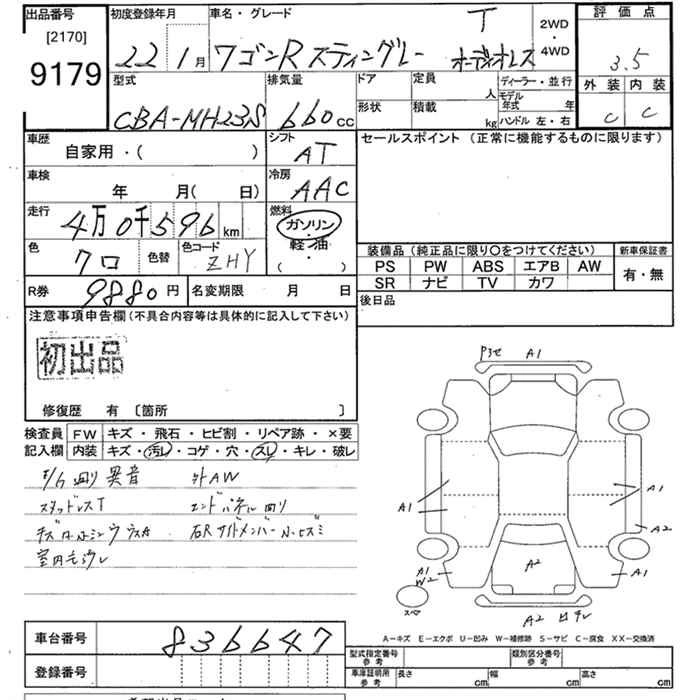 出品番号 初度登録年月 車名・グレード 評価点
[2170]
9179
22 1月 ワゴンR スティングレー T オーディオレス 2WD・4WD 3.5
型式 排気量 ドア 定員 人 ディーラー・並行 外装 内装
CBA-MH23S 660cc 形状 積載 kg モデル年式 年 C C
ハンドル 左・右
車歴 シフト セールスポイント(正常に機能するものに限ります)
自家用・( ) AT
車検 冷房
年 月( 日) AAC
走行 燃料
4万0千596km ガソリン・軽油
色 色替 色コード ( )
クロ ZHY
装備品(純正品に限り○をつけてください) 新車保証書
PS PW ABS エアB AW 有・無
SR ナビ TV カワ
R券 9880円 名変期限 月 日 後日品
注意事項申告欄(不具合内容等は具体的に記入して下さい)
初出品
修復歴 有 [箇所 ]
検査員 FW キズ・飛石・ヒビ割・リペア跡・×要
記入欄 内装 キズ・汚レ・コゲ・穴・スレ・キレ・破レ
異音 外AW
スタッドレスT エンドパネル
室内
A1
A1
A1
A2
A1
W2
A2
A1
A2
スペア
A-キズ E-エクボ U-凹み W-補修跡 S-サビ C-腐食 XX-交換済
車台番号 836647
登録番号
型式指定番号 参考 類別区分番号 参考
車庫証明用 参考 長さ cm 幅 cm 高さ cm